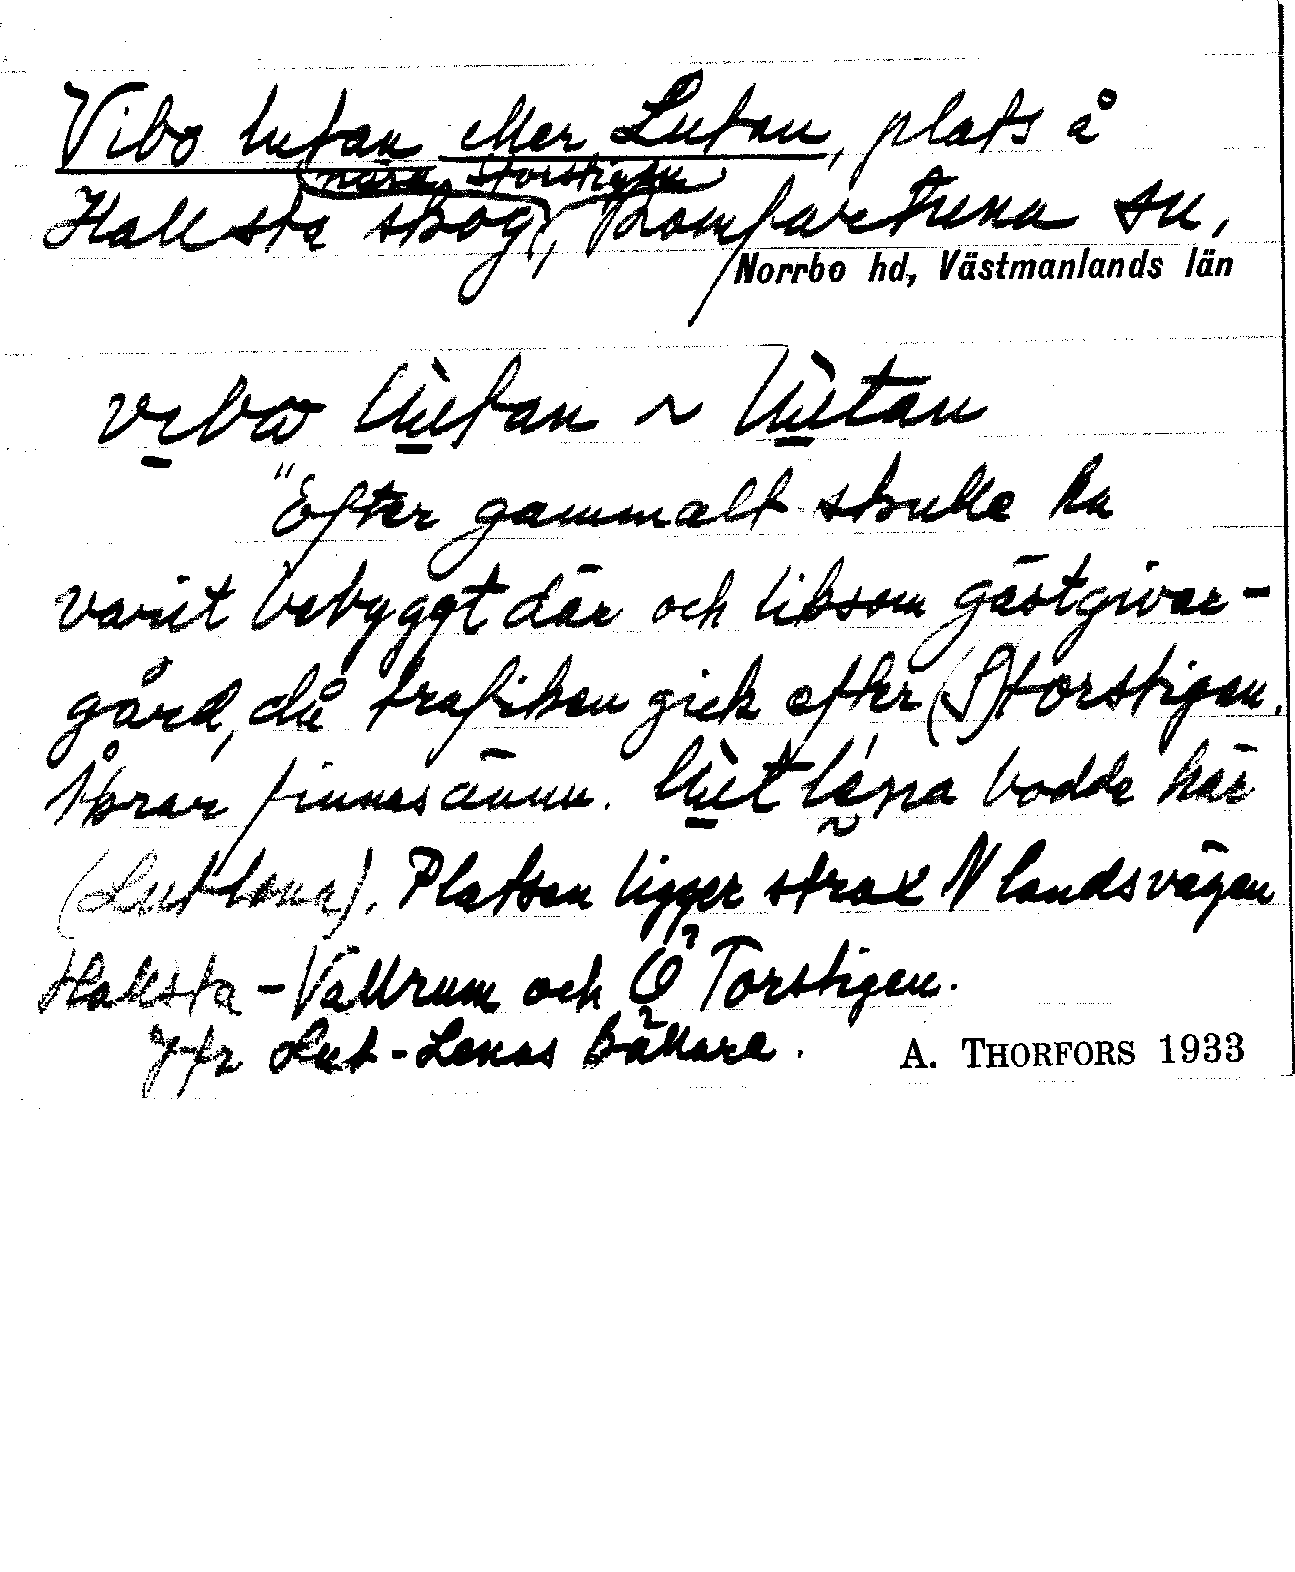 Vibo lutan eller Lutan, plats å
(nära Storstigen)
Hallsta skog, Romfartuna sn,
Norrbo hd, Västmanlands län
vibω lùtan ~ lùtan
"Efter gammalt skulle ha
varit bebyggt där och liksom gästgivar-
gård, då trafiken gick efter (S)torstigen.
Åkrar finnas ännu. lùt lena bodde här
(Lut-Lena). Platsen ligger strax N landsvägen
Hallsta - Vallrum och Ö Torstigen.
Jfr Lut-Lenas källare.
A. THORFORS 1933